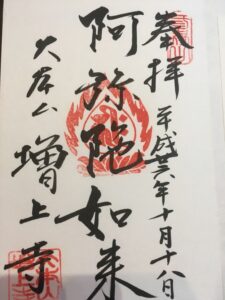 奉拝
平成廿八年十月十八日
阿弥陀如来
大本山
増上寺